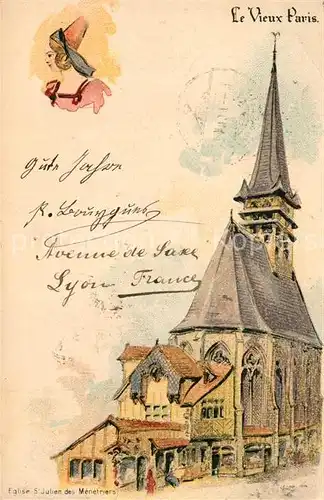 Le Vieux Paris.
Gute
R. Bourgues
Avenue de Saxe
Lyon France
Eglise St Julien des Ménétriers